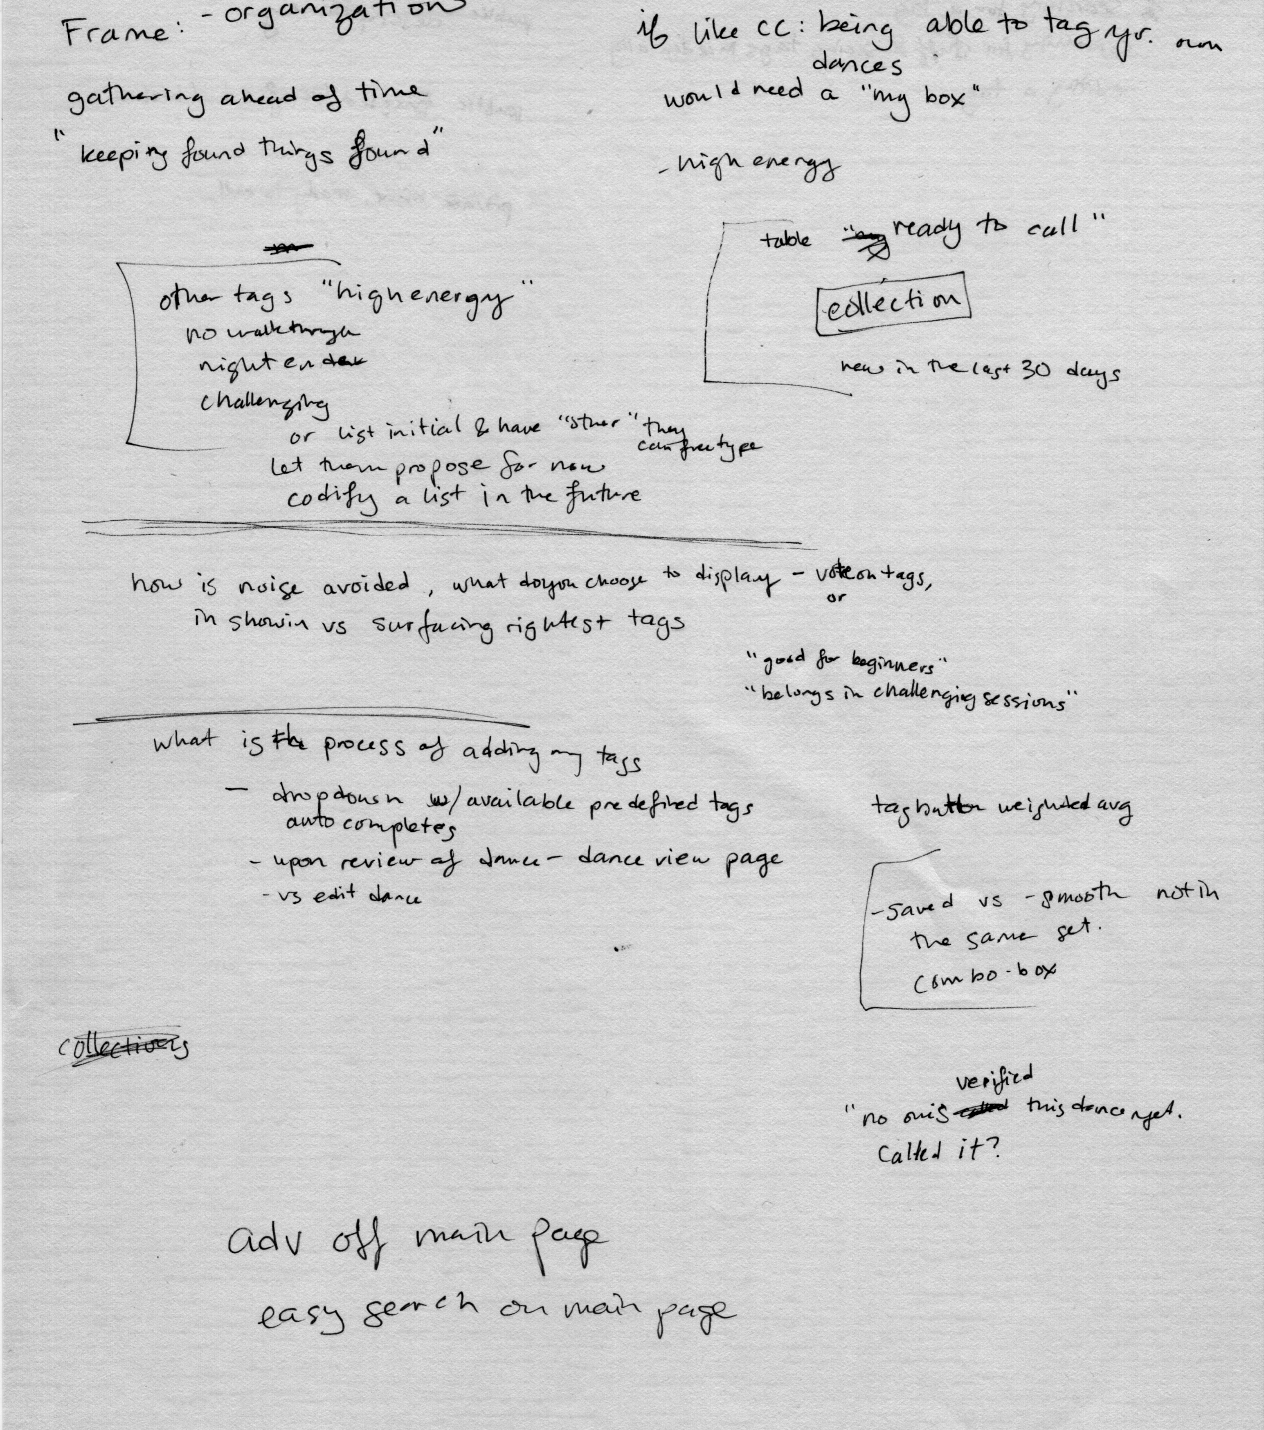 Frame: - organization
gathering ahead of time
"keeping found things found"
if like cc: being able to tag yr. own
dances
would need a "my box"
- high energy
table ready to call"
collection
new in the last 30 days
other tags "high energy"
no walkthrough
night ender
challenging
or list initial & have "other" they
can free type
let them propose for now
codify a list in the future
how is noise avoided, what do you choose to display - vote on tags,
or
in showin vs surfacing rightest tags
"good for beginners"
"belongs in challenging sessions"
what is the process of adding my tags
- dropdown w/ available predefined tags
auto completes
- upon review of dance - dance view page
- vs edit dance
tag button weighted avg
- saved vs - smooth not in
the same set.
combo-box
collections
verified
"no one's this dance yet.
called it?
adv off main page
easy search on main page